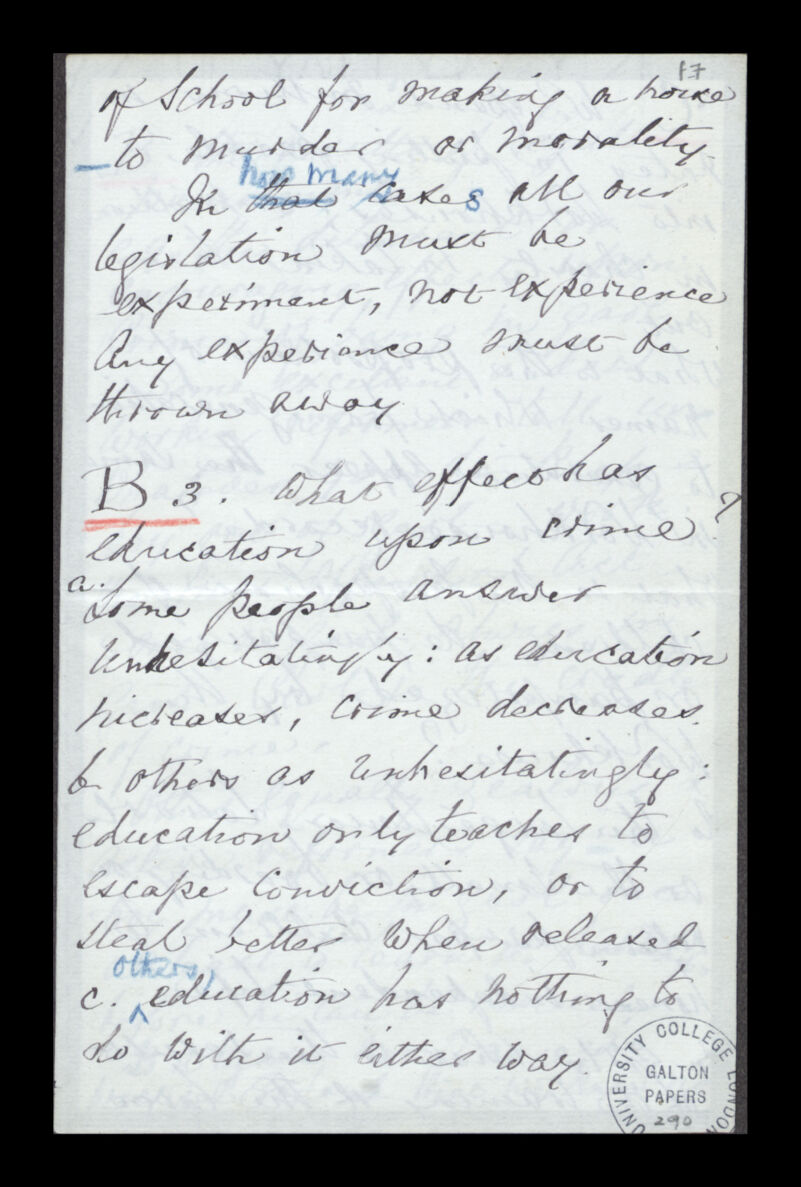 17
of School for making a noise
to murder or morality
how many
In that cases all our
legislation must be
experiment, not experience
Any experience must be
thrown away
B 3. What effect has
education upon crime?
a. Some people answer
unhesitatingly: as education
increases, crime decreases.
b others as unhesitatingly:
education only teaches to
escape conviction, or to
steal better when released
others,
c. ^ education has nothing to
do with it either way.
UNIVERSITY COLLEGE LONDON
GALTON
PAPERS
290